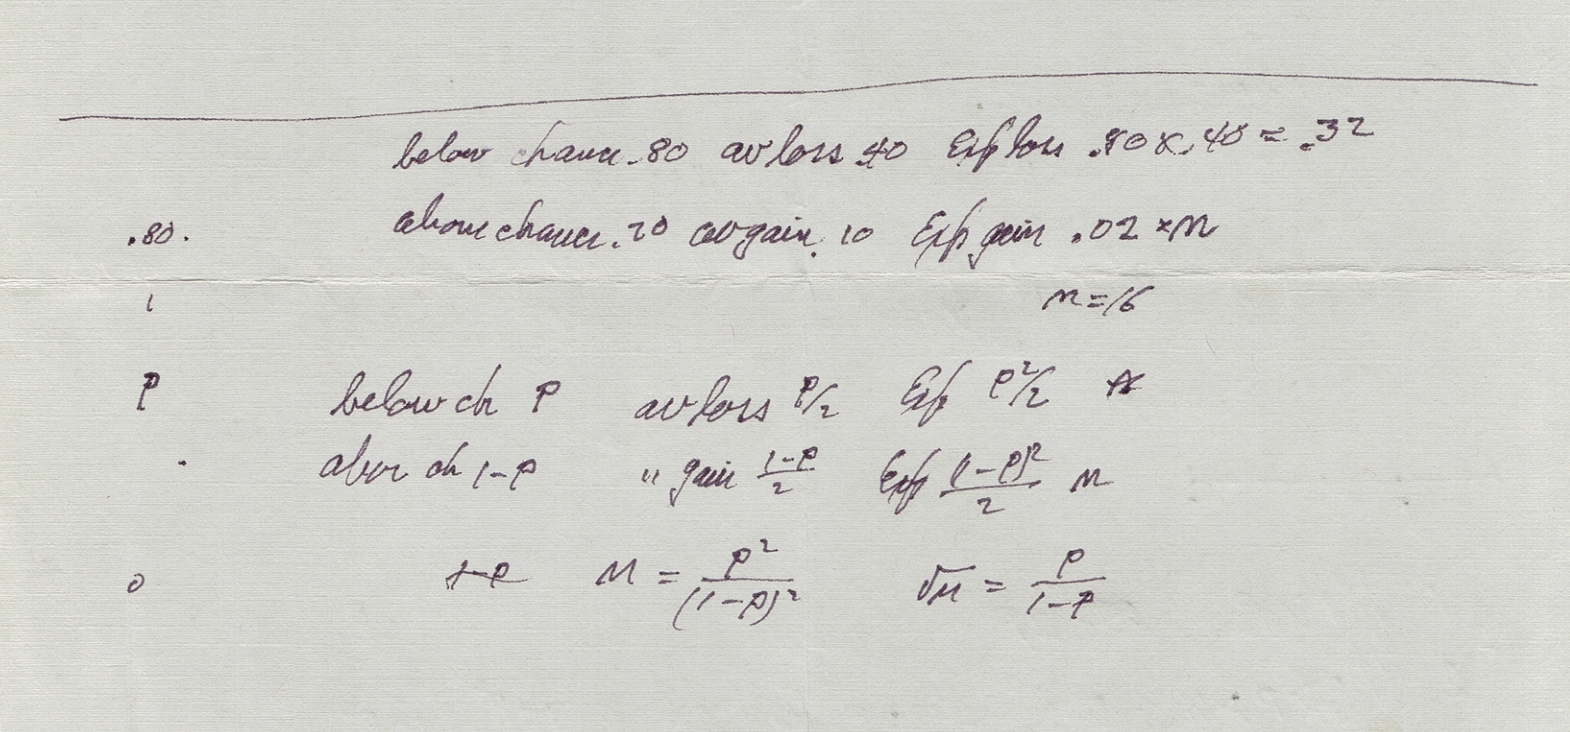 below chance .80 av loss .40 Exp loss .80 x .40 = .32
.80. above chance .20 av gain .10 Exp gain .02 x n
1 n=16
P below ch P av loss P/2 Exp P²/2
above ch 1-P " gain (1-P)/2 Exp (1-P)²/2 n
0 1-P n = P²/(1-P)² √n = P/(1-P)